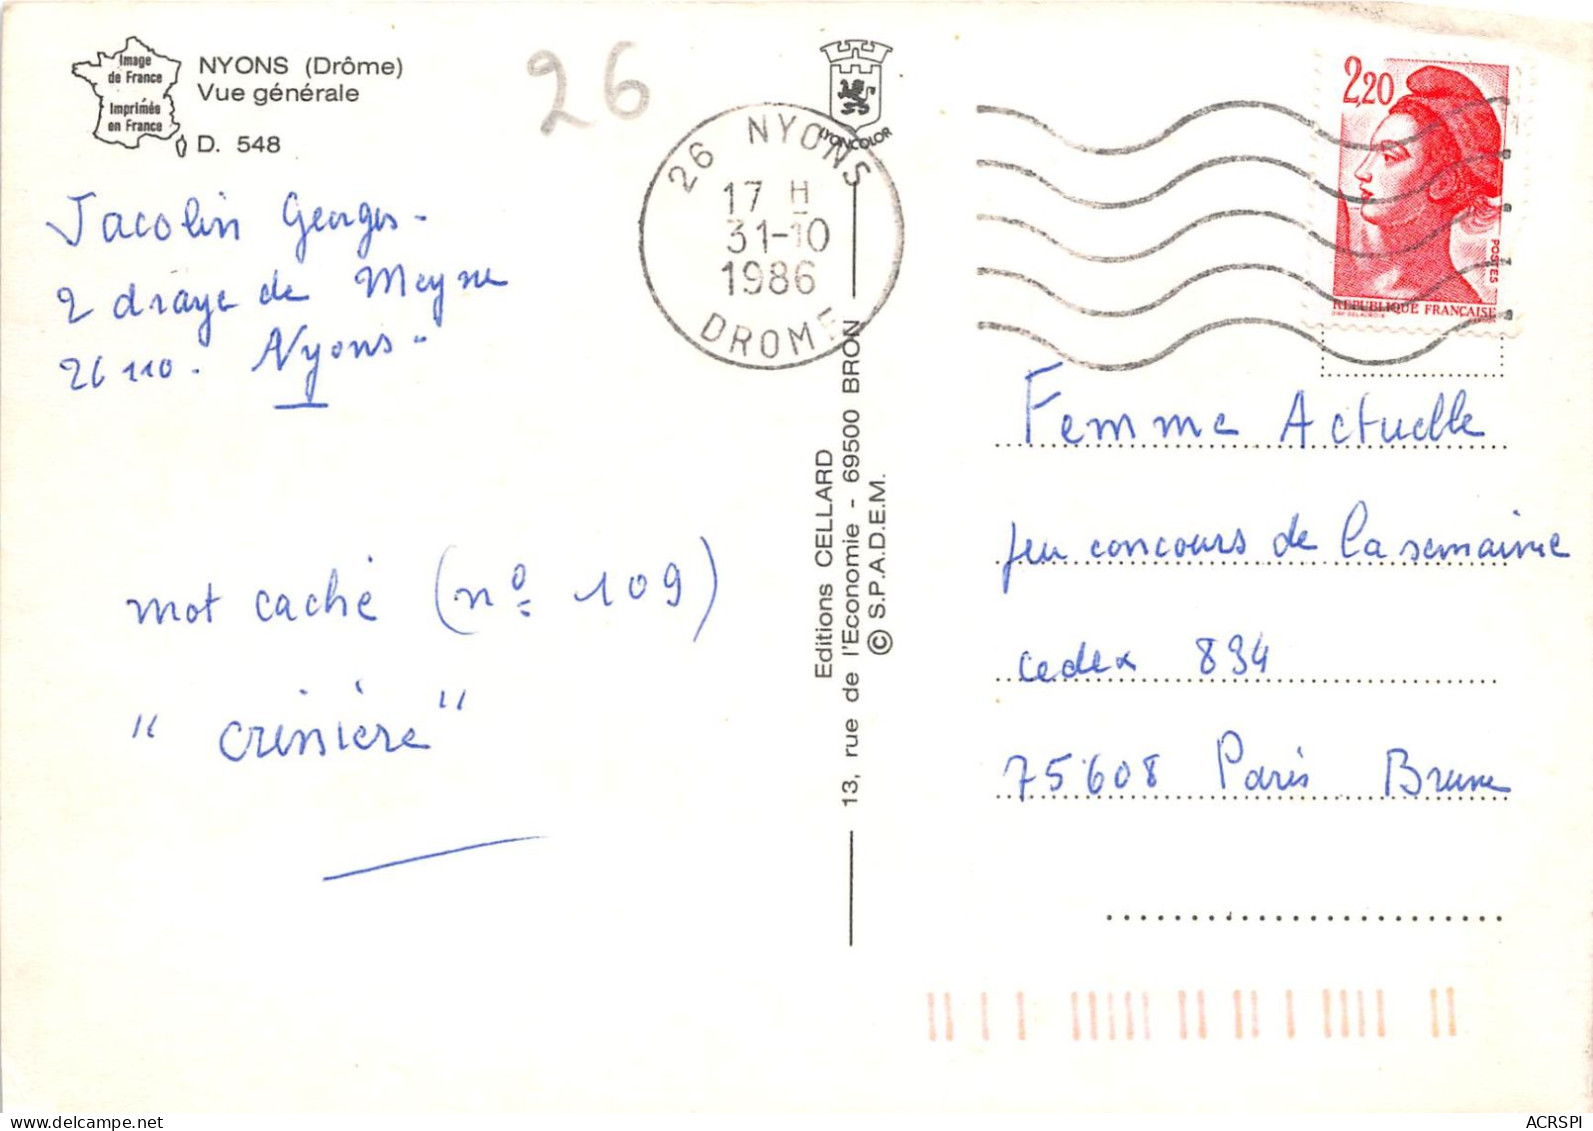 Image
de France
Imprimés
en France
NYONS (Drôme)
Vue générale
D. 548
26
LYONCOLOR
26 NYONS
17 H
31-10
1986
DROME
2,20
POSTES
REPUBLIQUE FRANÇAISE
Jacolin Georges -
2 draye de Meyne
26110. Nyons -
mot caché (nº 109)
" crinière "
Editions CELLARD
13, rue de l'Economie - 69500 BRON
© S.P.A.D.E.M.
Femme Actuelle
jeu concours de la semaine
cedex 834
75608 Paris Brune
ACRSPI